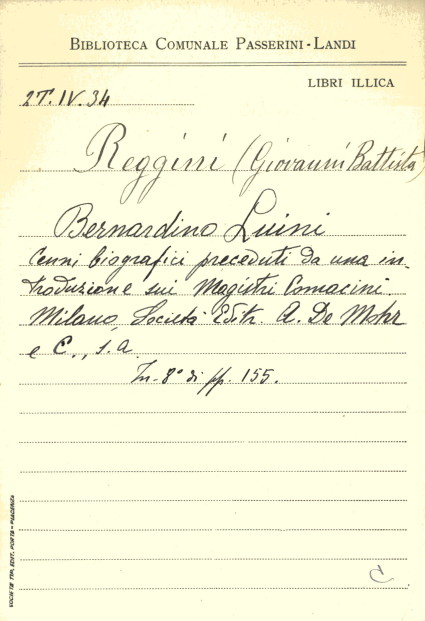 BIBLIOTECA COMUNALE PASSERINI-LANDI
LIBRI ILLICA
2T.IV.34
Reggini (Giovanni Battista)
Bernardino Luini
Cenni biografici preceduti da una in-
troduzione sui Magistri Comacini.
Milano, Società Editr. A. De Mohr
e C., s.a.
In-8° di pp. 155.
C
SOCIETÀ TIP. EDIT. PORTA - PIACENZA